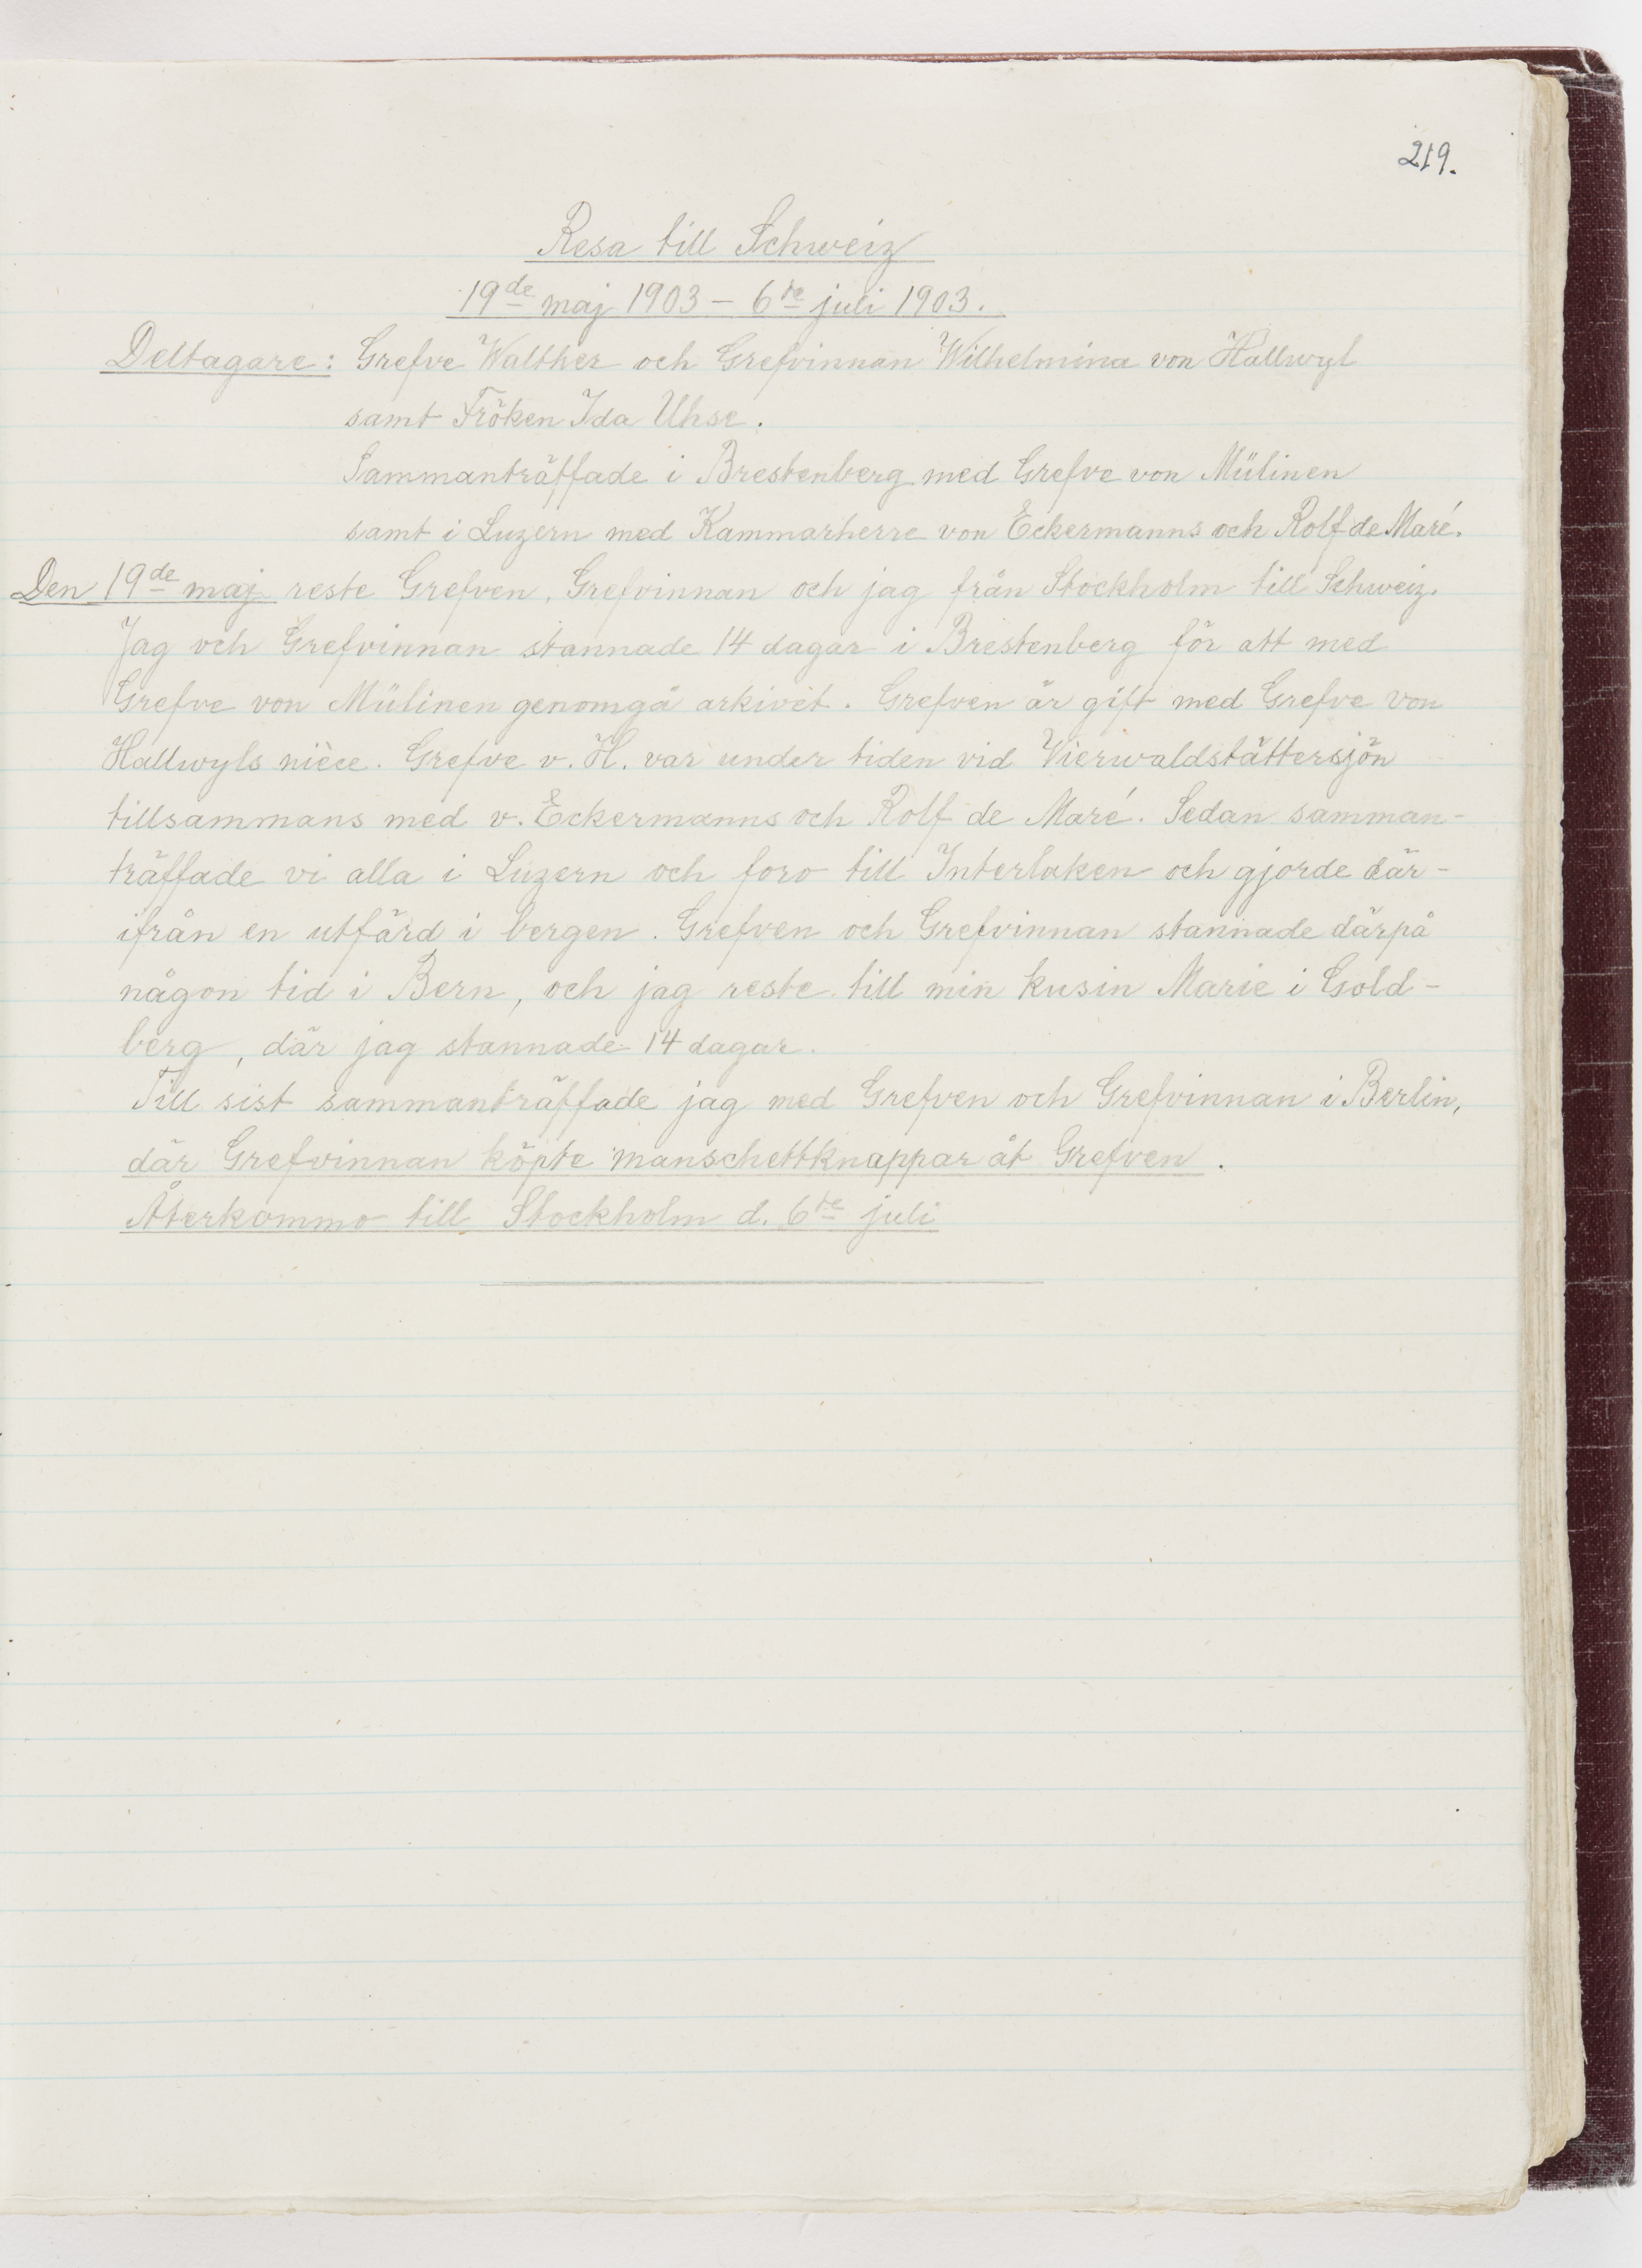 219.
Resa till Schweiz
19de maj 1903 – 6te juli 1903.
Deltagare: Grefve Walther och Grefvinnan Wilhelmina von Hallwyl
samt Fröken Ida Uhse.
Sammanträffade i Brestenberg med Grefve von Mülinen
samt i Luzern med Kammarherre von Eckermanns och Rolf de Maré.
Den 19de maj reste Grefven, Grefvinnan och jag från Stockholm till Schweiz.
Jag och Grefvinnan stannade 14 dagar i Brestenberg för att med
Grefve von Mülinen genomgå arkivet. Grefven är gift med Grefve von
Hallwyls nièce. Grefve v. H. var under tiden vid Vierwaldstättersjön
tillsammans med v. Eckermanns och Rolf de Maré. Sedan samman-
träffade vi alla i Luzern och foro till Interlaken och gjorde där-
ifrån en utfärd i bergen. Grefven och Grefvinnan stannade därpå
någon tid i Bern, och jag reste till min kusin Marie i Gold-
berg, där jag stannade 14 dagar.
Till sist sammanträffade jag med Grefven och Grefvinnan i Berlin,
där Grefvinnan köpte manschettknappar åt Grefven.
Återkommo till Stockholm d. 6te juli